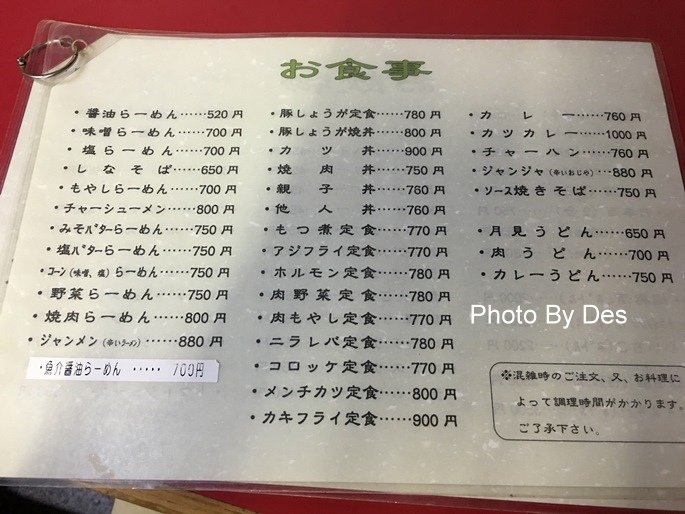 お食事
・醤油らーめん……520円
・味噌らーめん……700円
・塩らーめん……700円
・しなそば……650円
・もやしらーめん……700円
・チャーシューメン……800円
・みそバターらーめん……750円
・塩バターらーめん……750円
・コーン(味噌、塩)らーめん……750円
・野菜らーめん……750円
・焼肉らーめん……800円
・ジャンメン(辛いラーメン)……880円
・魚介醤油らーめん ‥‥‥ 700円
・豚しょうが定食……780円
・豚しょうが焼丼……800円
・カツ丼……900円
・焼肉丼……750円
・親子丼……760円
・他人丼……760円
・もつ煮定食……770円
・アジフライ定食……770円
・ホルモン定食……780円
・肉野菜定食……780円
・肉もやし定食……770円
・ニラレバ定食……780円
・コロッケ定食……770円
・メンチカツ定食……800円
・カキフライ定食……900円
・カレー……760円
・カツカレー……1000円
・チャーハン……760円
・ジャンジャ(辛いおじや)…880円
・ソース焼きそば……750円
・月見うどん……650円
・肉うどん……700円
・カレーうどん……750円
Photo By Des
※混雑時のご注文、又、お料理に
よって調理時間がかかります。
ご了承下さい。